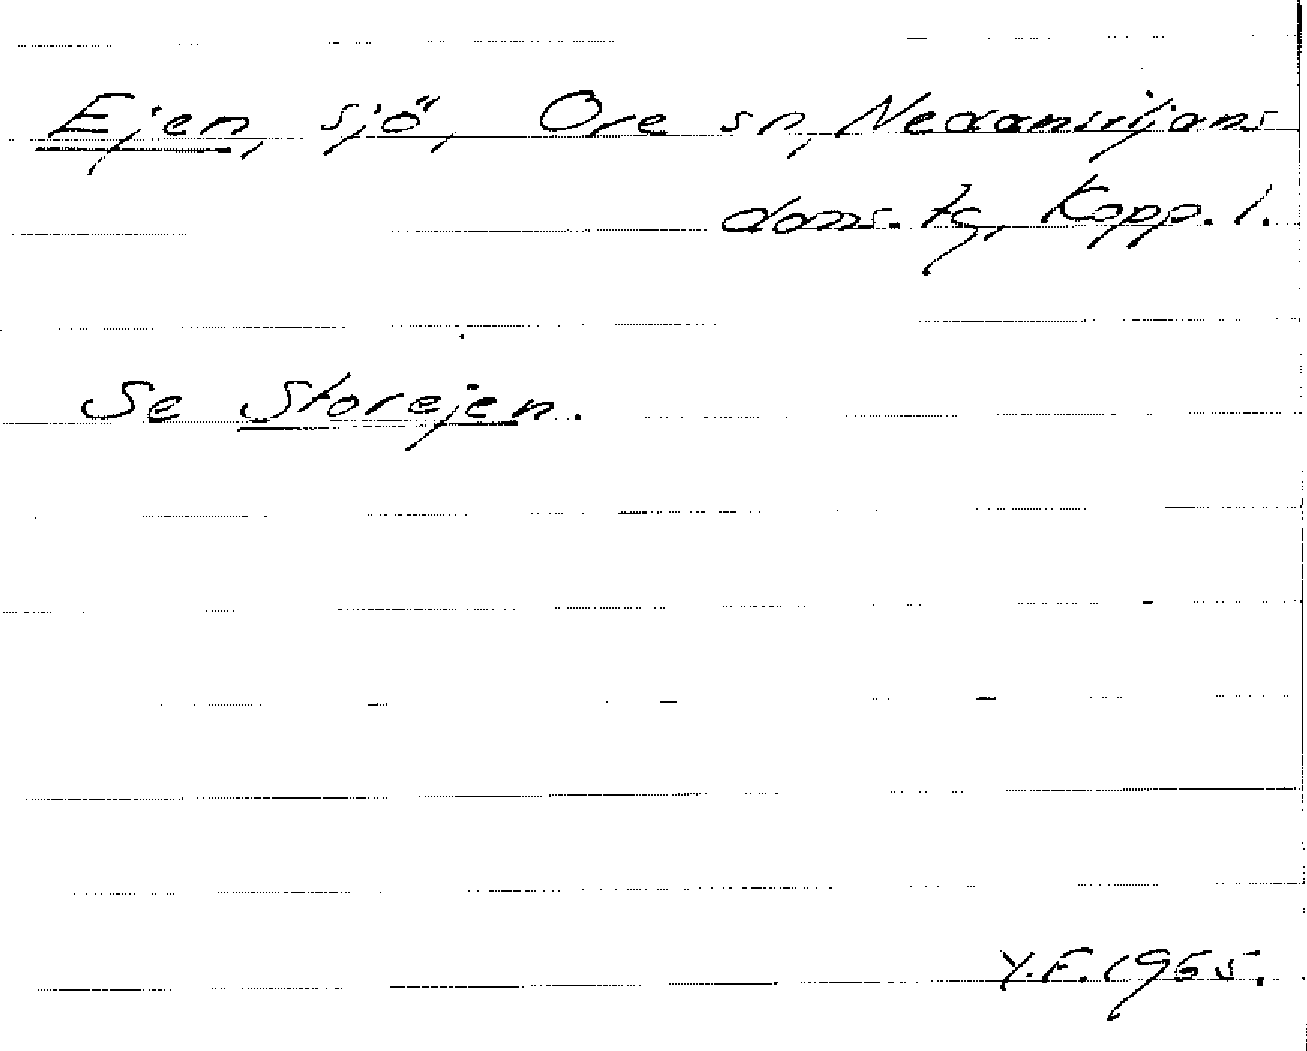 Ejen, sjö, Ore sn, Nedansiljans
doms. tg, Kopp. l.
Se Storejen.
Y.F. 1965.